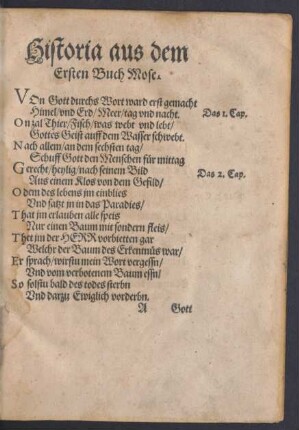 Historia aus dem
Ersten Buch Mose.
VOn Gott durchs Wort ward erst gemacht
Himel/vnd Erd/Meer/tag vnd nacht. Das 1. Cap.
Onzal Thier/Fisch/was webt vnd lebt/
Gottes Geist auff dem Wasser schwebt.
Nach allem/an dem sechsten tag/
Schuff Gott den Menschen für mittag
Gerecht/heylig/nach seinem Bild Das 2. Cap.
Aus einem Klos von dem Gefild/
Odem des lebens jm einblies
Vnd satzt jn in das Paradies/
That jm erlauben alle speis
Nur einen Baum mit sondern fleis/
Thet jm der HERR vorbietten gar
Welchr der Baum des Erkentnüs war/
Er sprach/wirstu mein Wort vergessn/
Vnd vom verbotenem Baum essn/
So solstu bald des todes sterbn
Vnd darzu Ewiglich vorderbn.
A Gott